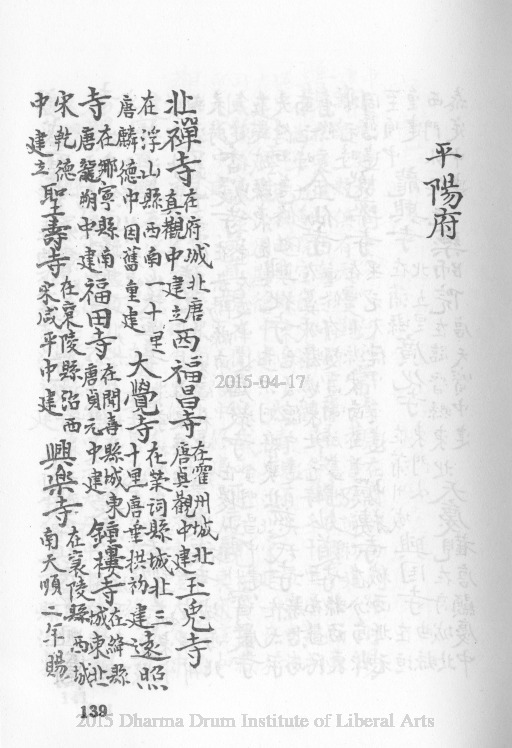 平陽府
北禪寺在府城北唐真觀中建立西福昌寺在霍州城北唐貞觀中建玉兎寺
在浮山縣西南一十里唐麟德中因舊重建大覺寺在榮詞縣城北三十里唐垂拱初建遠照
寺在鄉寧縣南唐龍朔中建福田寺在聞喜縣城東唐貞元中建鐘樓寺在絳縣城東北
宋乾德中建立聖壽寺在襄陵縣治西宋咸平中建興樂寺在襄陵縣西城南天順二年賜
139
2015-04-17
2015 Dharma Drum Institute of Liberal Arts